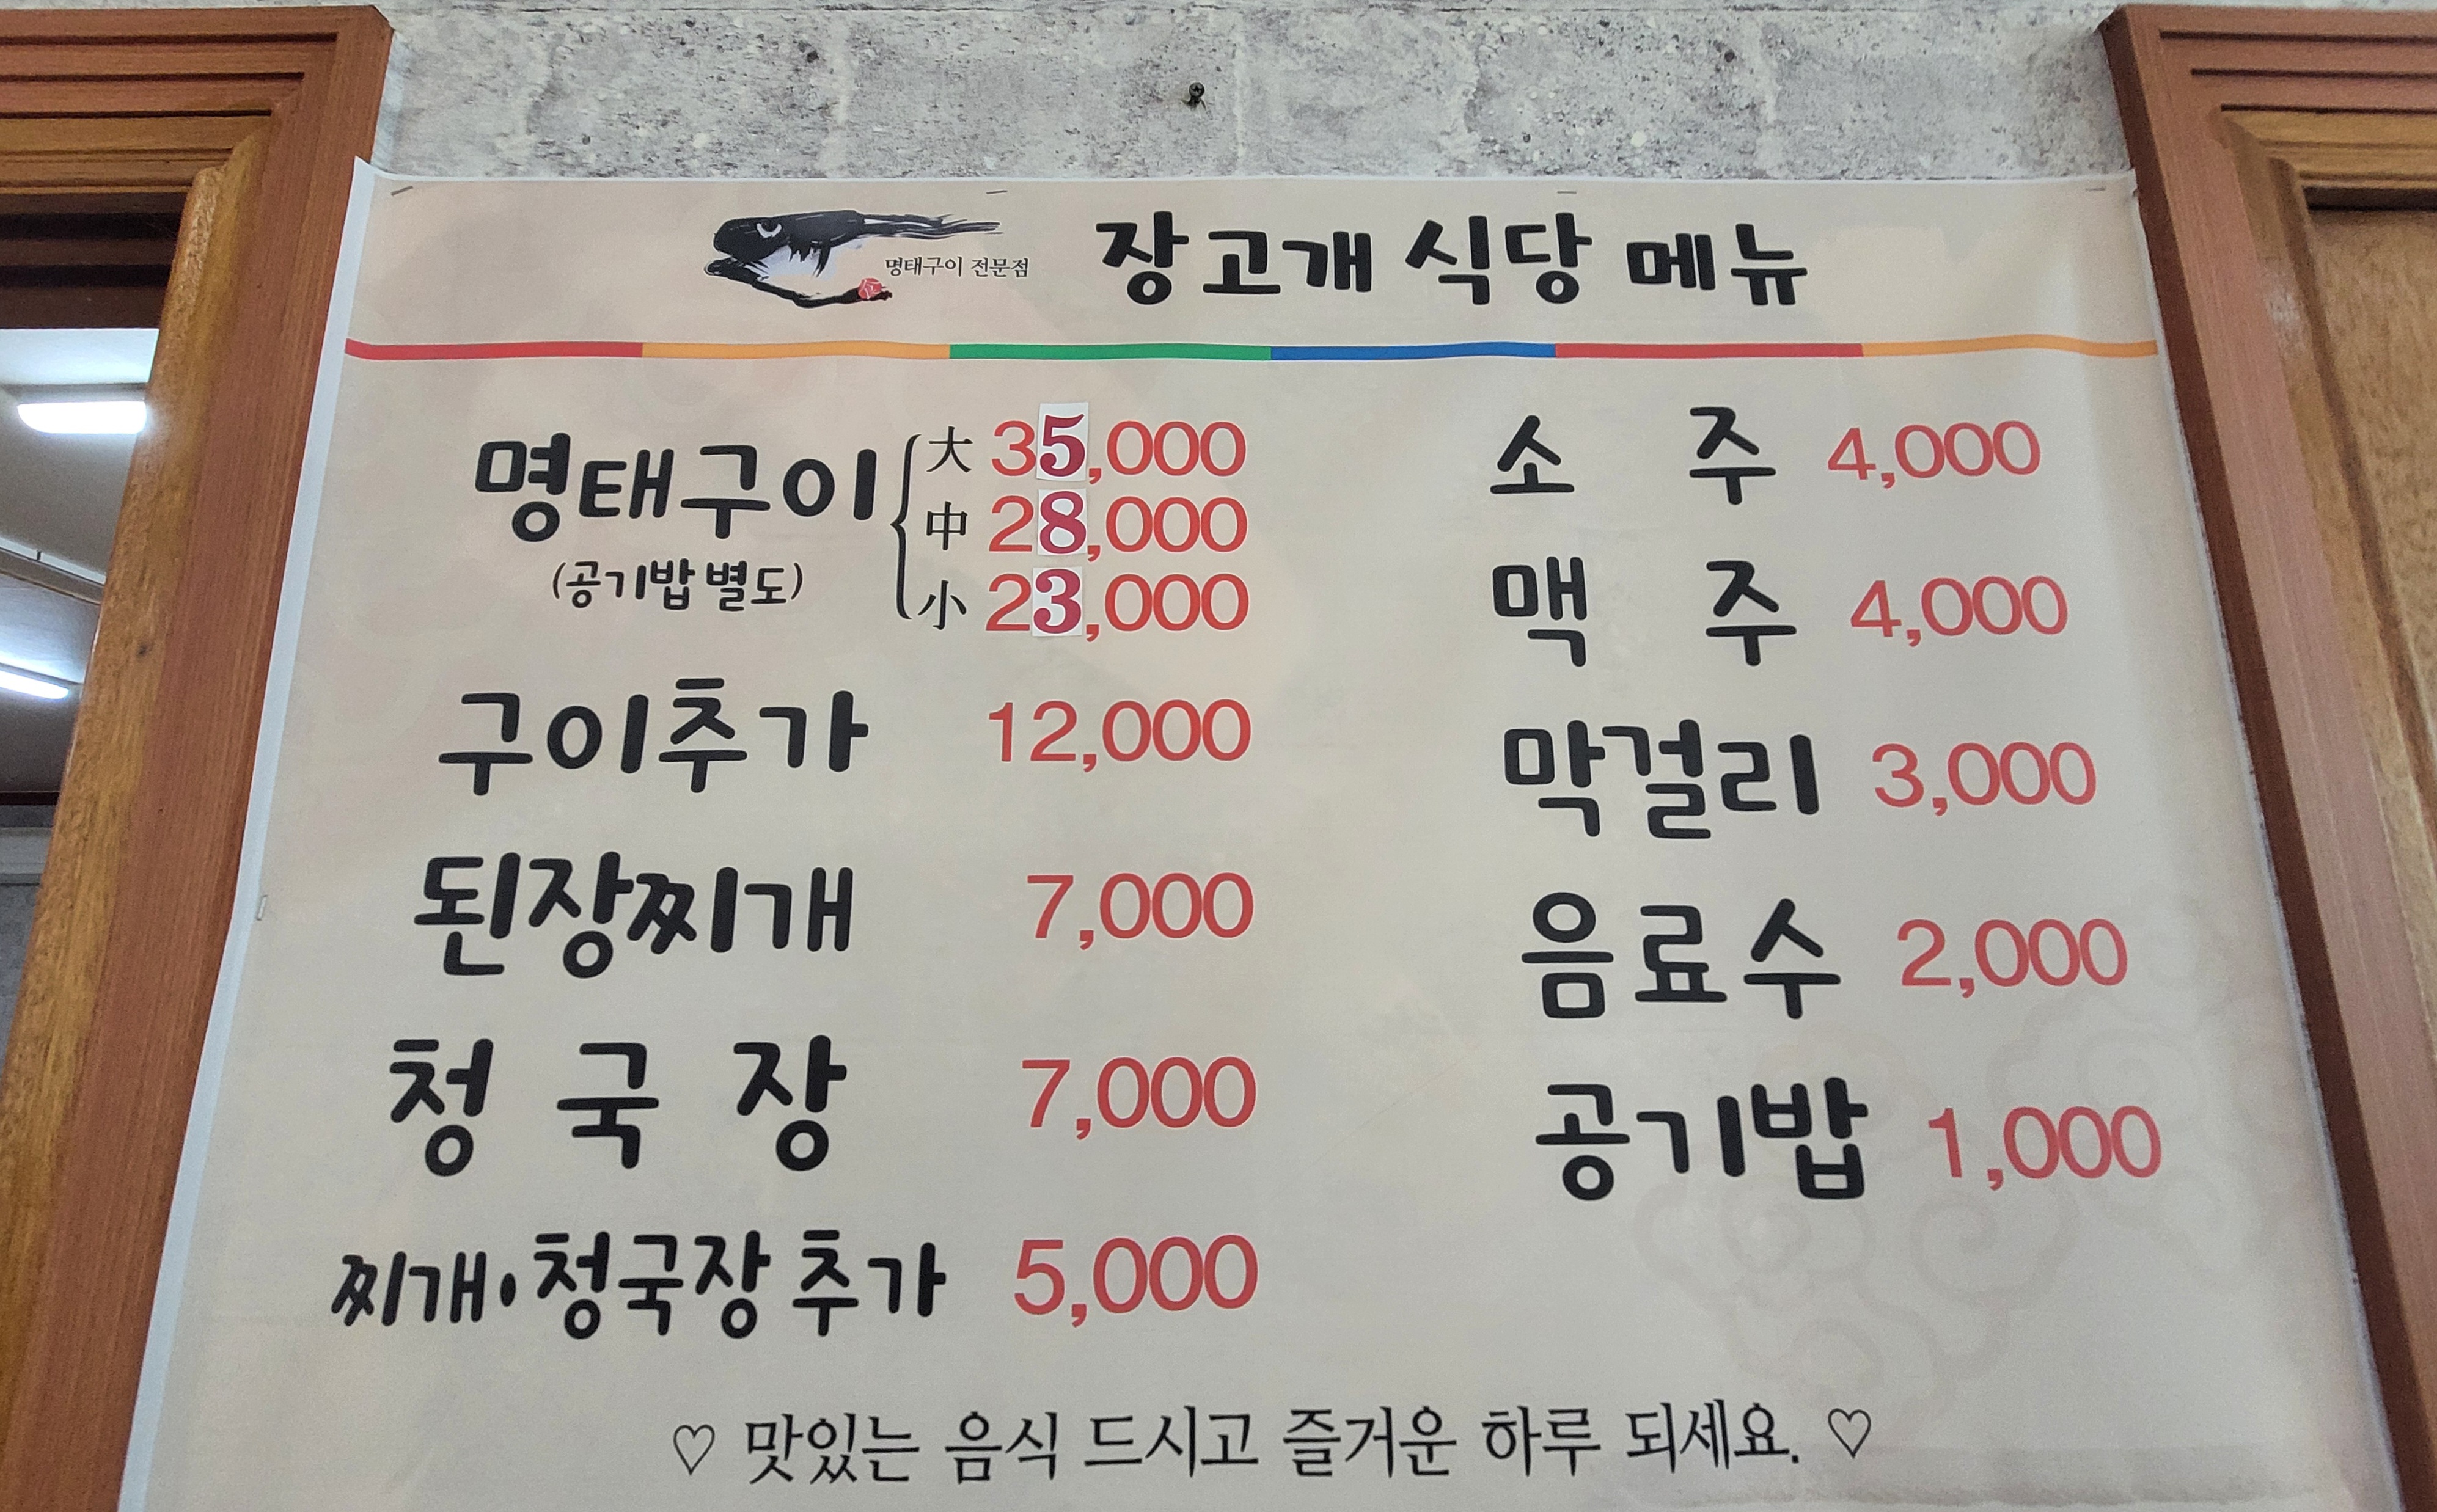 명태구이 전문점
장고개 식당 메뉴
명태구이
(공기밥 별도)
大 35,000
中 28,000
小 23,000
구이추가 12,000
된장찌개 7,000
청국장 7,000
찌개·청국장 추가 5,000
소주 4,000
맥주 4,000
막걸리 3,000
음료수 2,000
공기밥 1,000
♡ 맛있는 음식 드시고 즐거운 하루 되세요. ♡